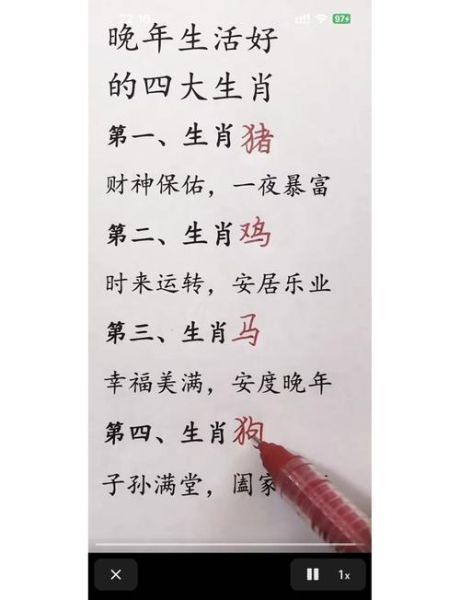 22:10
97
晚年生活好
的四大生肖
第一、生肖猪
财神保佑，一夜暴富
第二、生肖鸡
时来运转，安居乐业
第三、生肖马
幸福美满，安度晚年
第四、生肖狗
子孙满堂，阖家
1x